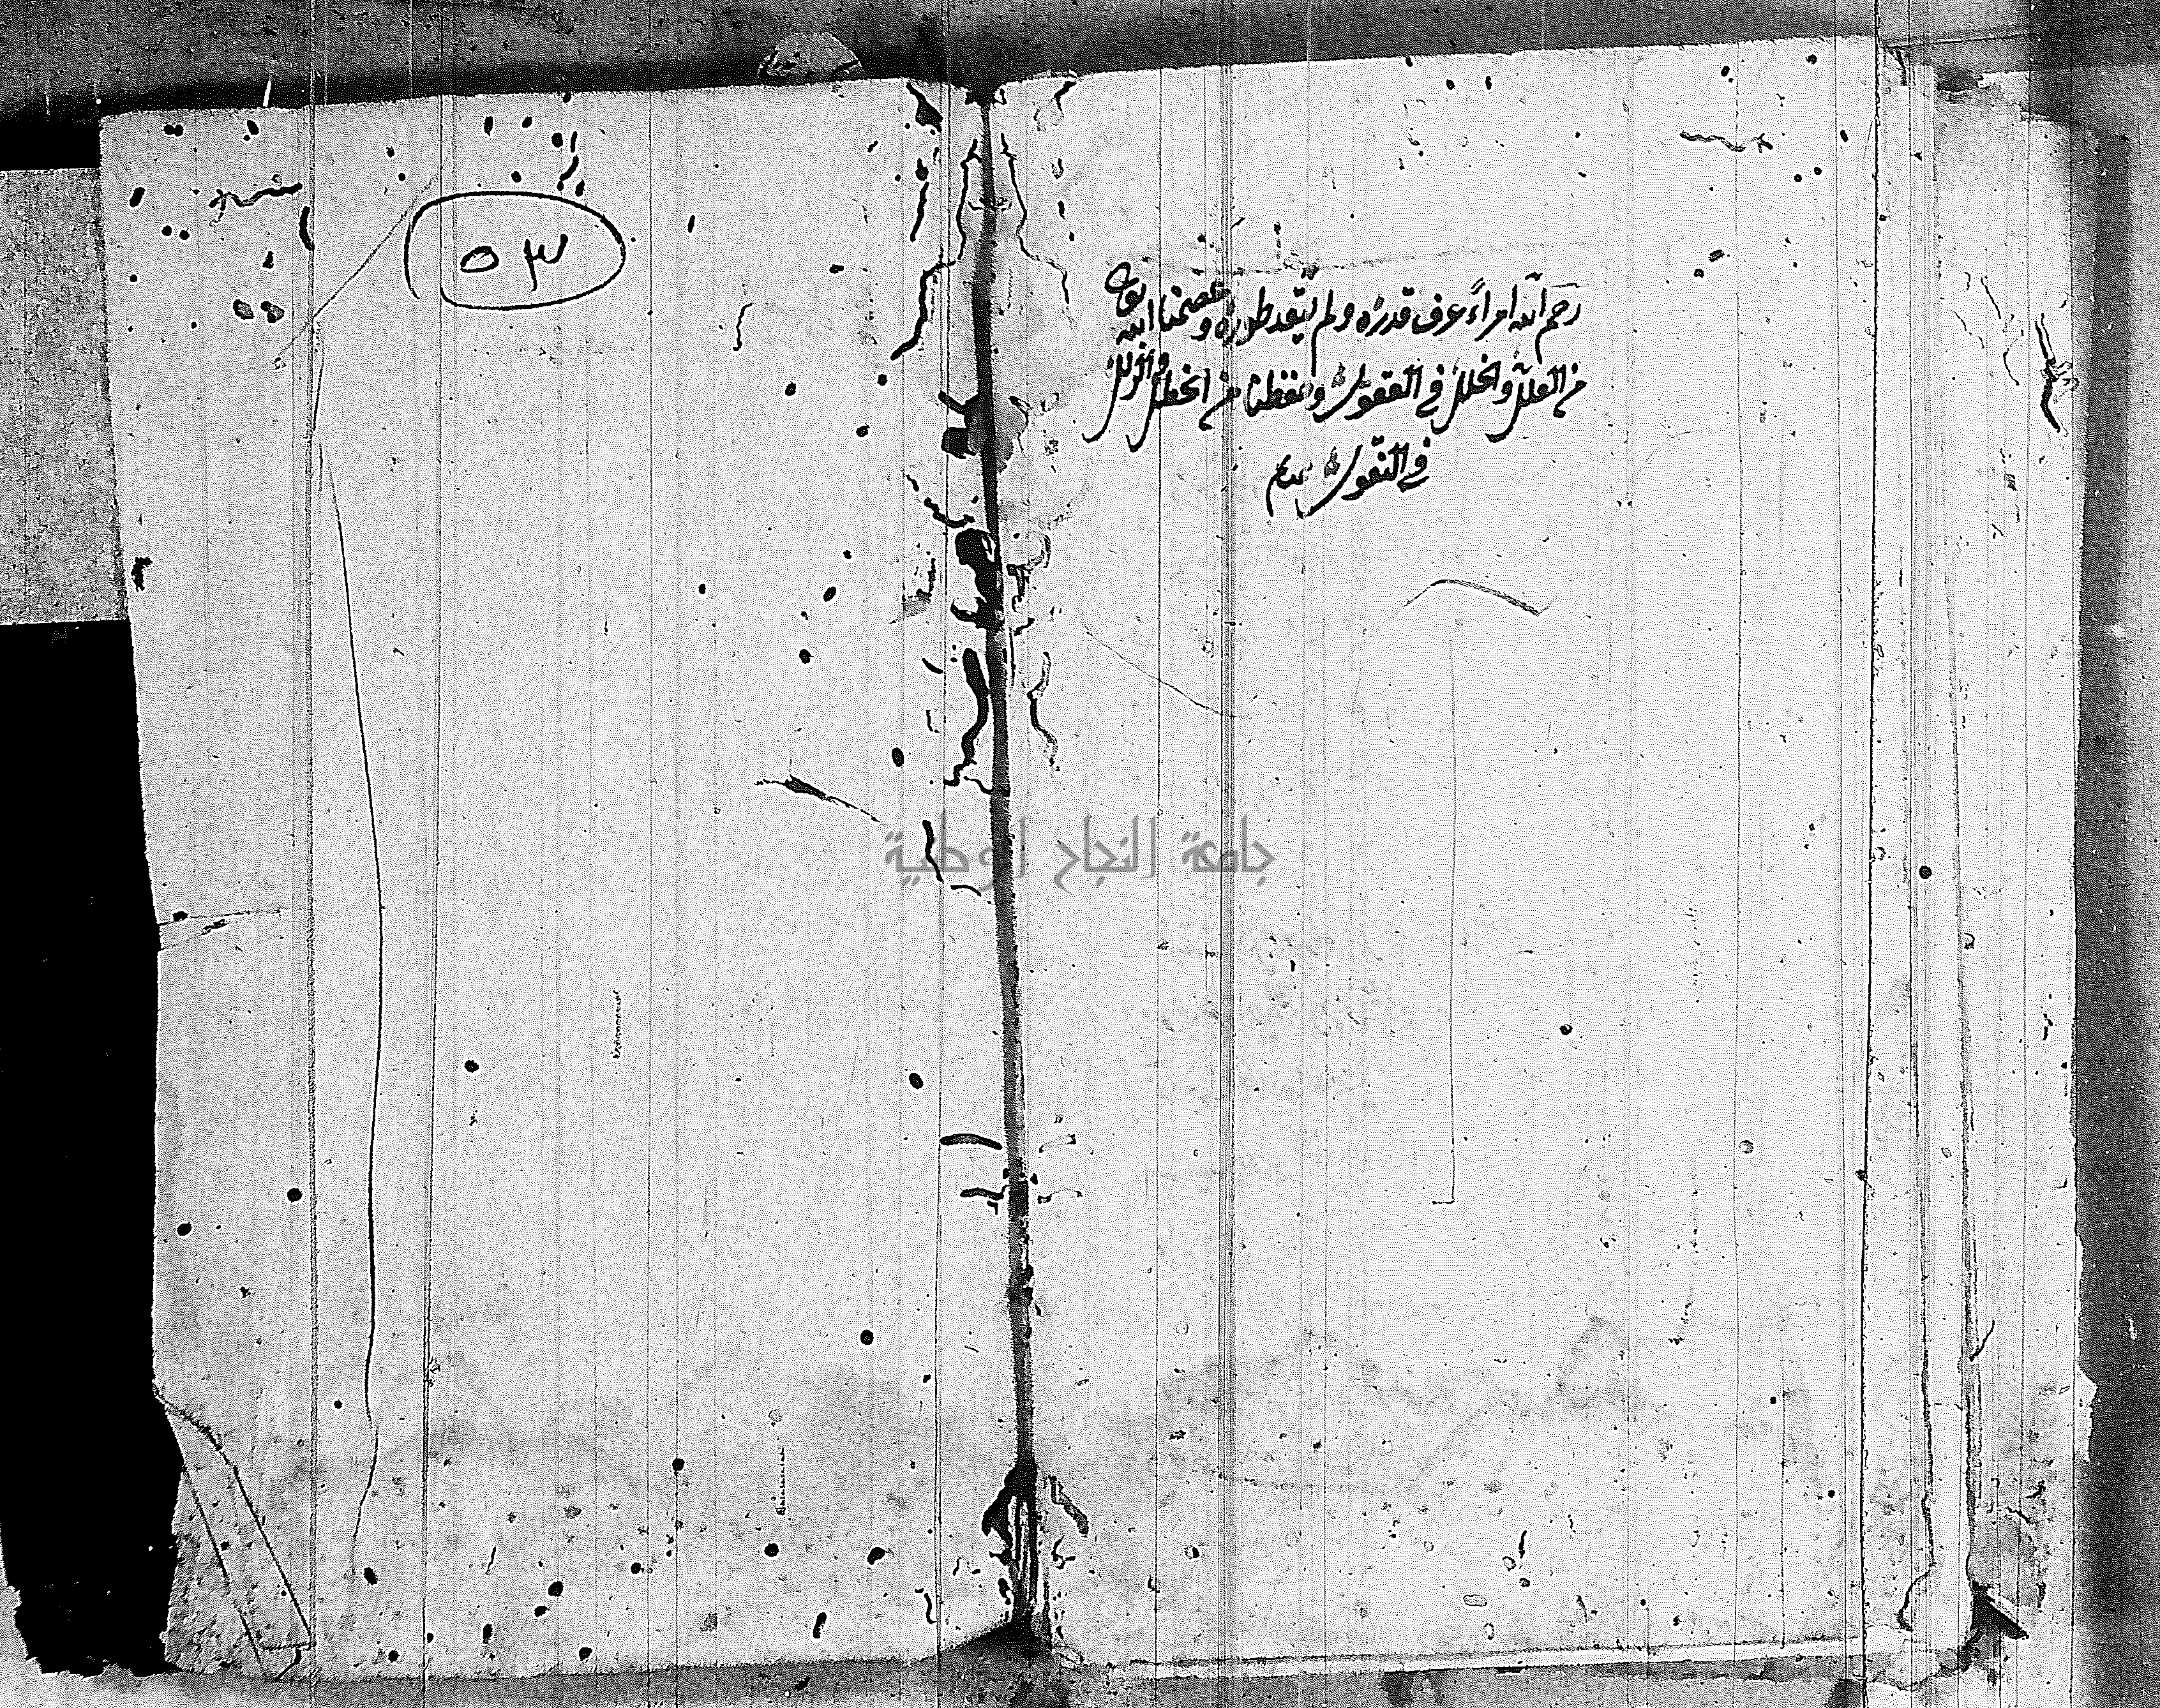 رحم الله امراءً عرف قدره ولم يتعد طوره وعصمنا الله
من العلل والخلل في العقول وحفظنا من الخطل والزلل
في النقول
٥٣
جامعة النجاح الوطنية